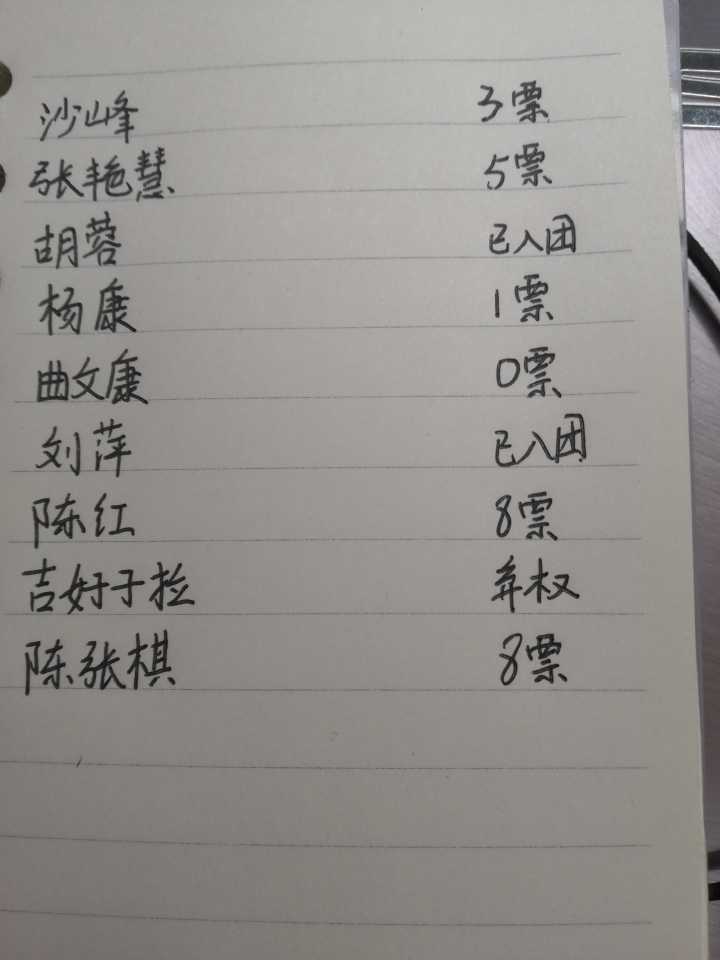 沙山峰 3票
张艳慧 5票
胡蓉 已入团
杨康 1票
曲文康 0票
刘萍 已入团
陈红 8票
吉好子拉 弃权
陈张棋 8票